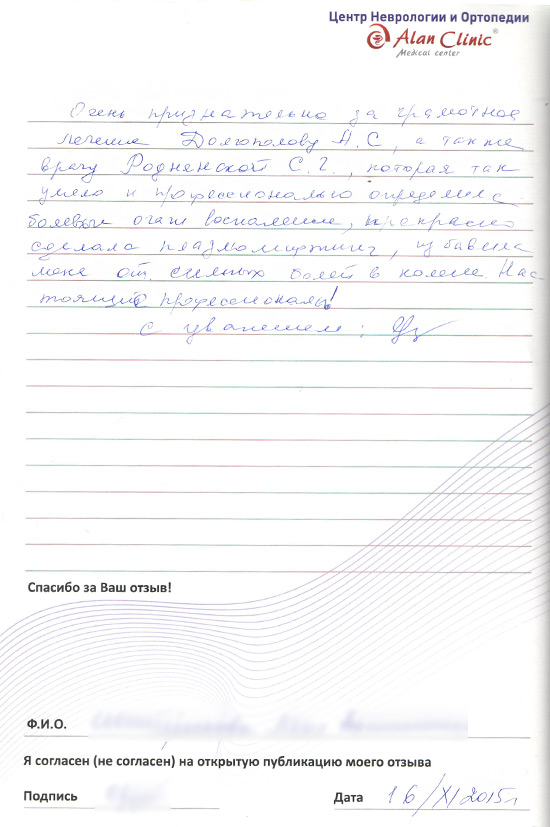 Центр Неврологии и Ортопедии
Alan Clinic®
Medical center
Очень признательна за грамотное
лечение Долгополову А.С, а также
врачу Родненской С.Г., которая так
умело и профессионально определила
болевые очаги воспаления, прекрасно
сделала плазмолифтинг, избавила
меня от сильных болей в колене. Нас-
тоящие профессионалы!
С уважением:
Спасибо за Ваш отзыв!
Ф.И.О.
Я согласен (не согласен) на открытую публикацию моего отзыва
Подпись
Дата 16/XI 2015г